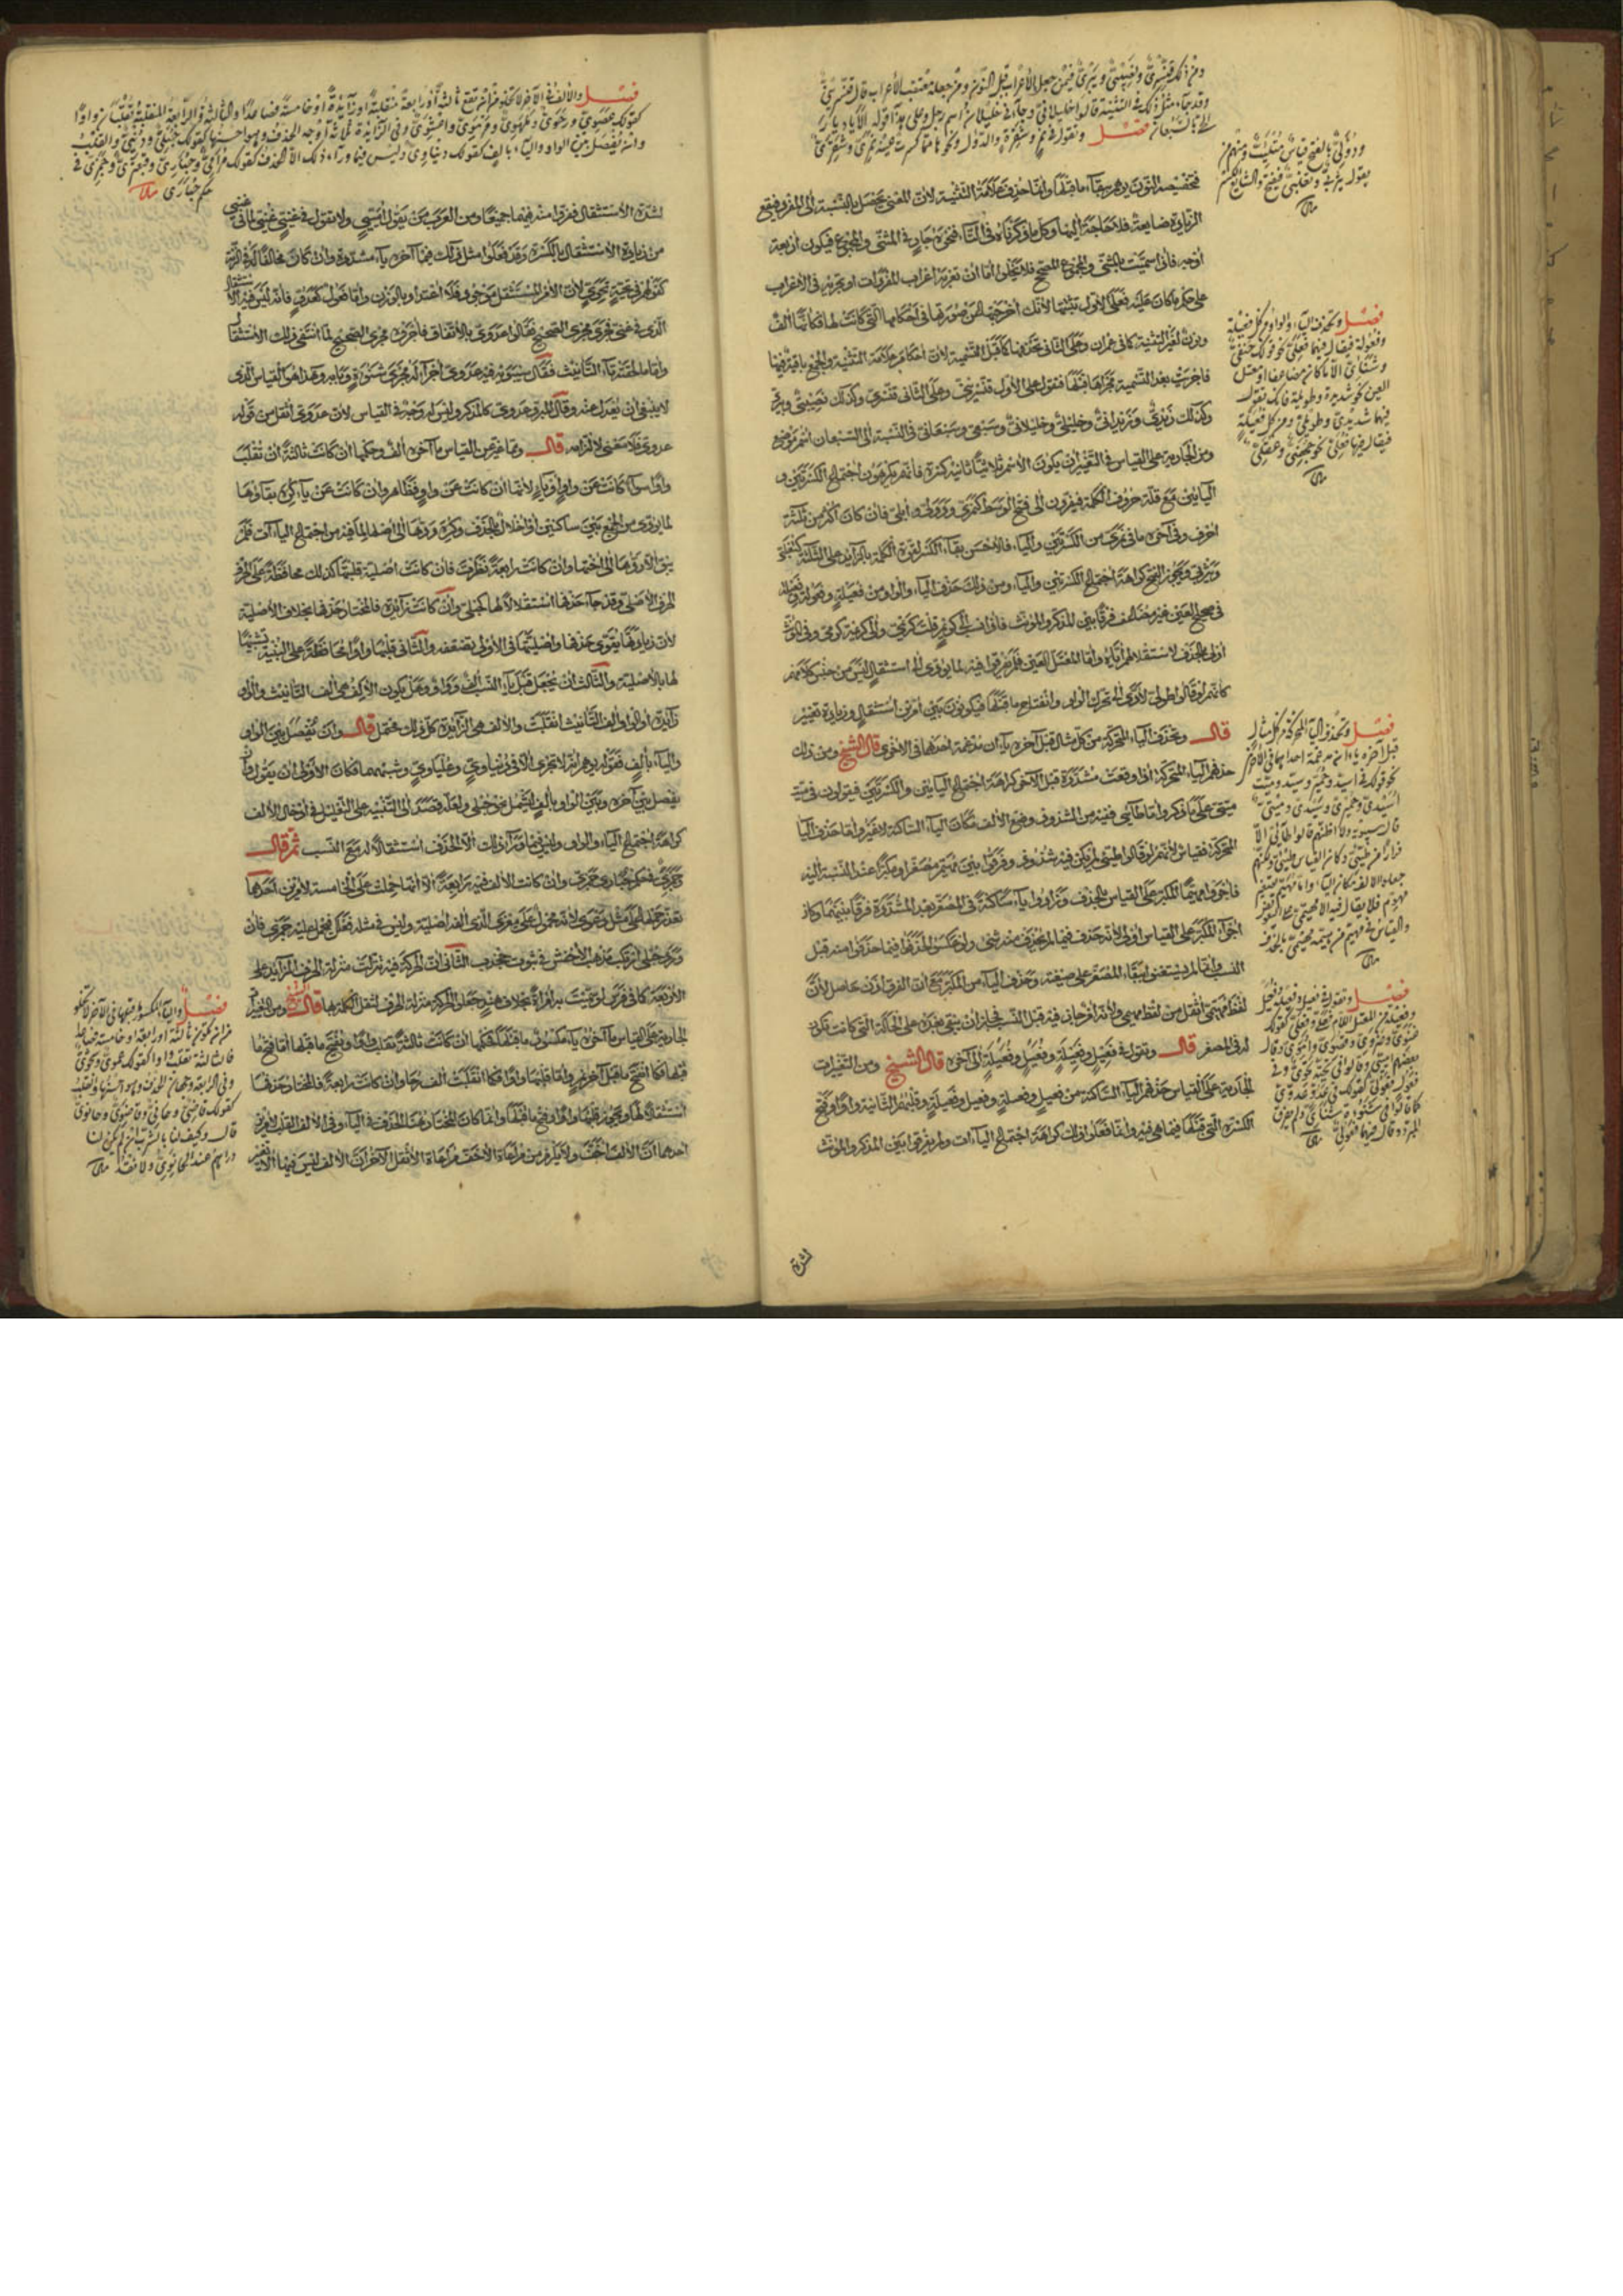 ومن ذلك قنسري ونصيبي ويبري فيمن جعل الأعراب قبل النون ومن جعله معتقب الأعراب قال قنسريني
وقد جاء مثل ذلك في التثنية قالوا خليلاني وجاءني خليلان اسم رجل وعلى هذا قوله الا يا ديار
الحي بالسبعان فصل وتقول في نمر وشقرة والدئل ونحوها مما كسرت عينه نمري وشقري
ودؤلي بالفتح قياس متلئب ومنهم من
يقول يثربي وتغلبي فيفتح والشايع الكسر
تخفيضه النون يوهم بقاء ما قبلها وانما حذف علامة التثنية لان المعنى يحصل بالنسبة الى المفرد فيقع
الزيادة ضايعة فلا حاجة اليها وكل ما ذكرناه في التاء فنحوه جار في المثنى والمجموع فيكون اربعة
اوجه فاذا سميت بالمثنى والمجموع المصحح فلا يخلو اما ان تعربه اعراب المفردات او تجريه في الاعراب
على حكم ما كان عليه فعلى الاول تثبتها لانك اخرجتها من صورتها في احكامها التي كانت لها فكانها الف
ونون لغير التثنية كما في عمران وعلى الثاني تحذفها كما قبل التسمية لان احكام علامة التثنية والجمع باقية فيها
فاجريت بعد التسمية مجراها قبلها فتقول على الاول قنسريني وعلى الثاني قنسري وكذلك نصيبي ويبري
وكذلك زيدي وزيداني وخليلي وخليلاني وسبعي وسبعاني في النسبة الى السبعان اسم موضع
ومن الجارية على القياس في التغيير ان يكون الاسم ثلاثيا ثانيه كسرة فانهم يكرهون اجتماع الكسرتين و
اليائين مع قلة حروف الكلمة فيفرون الى فتح الوسط كنمري ودؤلي وابلي فان كان اكثر من ثلثة
احرف وفي آخره ما في نمري من الكسرتين والياء فالاحسن بقاء الكسر لتقوية الكلمة بالزايد على الثلثة كتغلبي
ويثربي ويجوز الفتح كراهة اجتماع الكسرتين والياء ومن ذلك حذف الياء والواو من فعيلة وفعولة وفعيلة
في صحيح العين غير مضاعف فرقا بين المذكر والمؤنث فاذا نسب الى كريم قلت كريمي والى كريمة كرمي وفي المؤنث
اولى بالحذف لاستثقالهم اياه واما المعتل العين فلم يفرقوا فيه لما يؤدي الى استثقال ليس من جنس كلامهم
كانهم لو قالوا طولي لادى الى تحرك الواو وانفتاح ما قبلها فيكونون بين امرين استثقال وزيادة تغيير
قال وتحذف الياء المتحركة من كل مثال قبل آخره ياءان مدغمة احداهما في الاخرى قال الشيخ ومن ذلك
حذفهم الياء المتحركة اذا وقعت مشددة قبل الآخر كراهة اجتماع اليائين والكسرتين فيقولون في ميت
ميتي على ما ذكر واما طائي ففيه من الشذوذ وضع الالف مكان الياء الساكنة لا غير واما حذف الياء
المتحركة فقياس لانهم لو قالوا طيئي لم يكن فيه شذوذ وفرقوا بين مهيم مصغرا ومكبرا عند النسبة اليه
فاجروا مهيما المكبر على القياس بالحذف وزادوا ياء ساكنة في المصغر بعد المشددة فرقا بينهما وكان
اجراء المكبر على القياس اولى لانه حذف فيما لم يحذف منه شيء ولو عكس لحذفوا فيما حذفوا منه قبل
النسب وانما لم يستغنوا ببقاء المصغر على صيغته وحذف الياء من المكبر مع ان الفرق اذن حاصل لان
لفظ مهيمي اثقل من لفظ مهيمي ولانه امر جاز فيه قبل النسب فجاز ان يبقى بعده على الحالة التي كانت تكون
له في المصغر قال وتقول في فعيل وفعيلة وفعيل وفعيلة الى آخره قال الشيخ ومن التغييرات
الجارية على القياس حذفهم الياء الساكنة من فعيل وفعيلة وفعيل وفعيلة وقلبهم الثانية واوا وفتح
الكسرة التي قبلها فيما هي فيه وانما فعلوا ذلك كراهة اجتماع الياءات ولم يفرقوا بين المذكر والمؤنث
فصل وتحذف الياء والواو من كل فعيلة
وفعولة فيقال فيهما فعلي نحو قولك حنفي
وشنئي الا ما كان مضاعفا او معتل
العين نحو شديدة وطويلة فانك تقول
فيهما شديدي وطويلي ومن كل فعيلة
فيقال فيها فعلي نحو جهني وعقلي
فصل وتحذف الياء المتحركة من كل مثال
قبل آخره ياءان مدغمة احداهما في الاخرى
نحو قولك في اسيد وحمير وسيد وميت
اسيدي وحميري وسيدي وميتي
قال سيبويه ولا اظنهم قالوا طائي الا
فرارا من طيئي وكان القياس طيئي ولكنهم
جعلوا الالف مكان الياء واما مهيم تصغير
مهوم فلا يقال فيه الا مهييمي على التعويض
والقياس في مهيم من هيمه مهيمي بالحذف
فصل وتقول في فعيل وفعيلة وفعيل
وفعيلة من المعتل اللام فعلي وفعلي كقولك
غنوي وضروي وقصوي واموي وقال
بعضهم اميي وقالوا في تحية تحوي وفي
فعول فعولي كقولك في عدو عدوي
لشدة
فصل والالف في الآخر لا تخلو من ان تقع ثالثة او رابعة منقلبة او زايدة او خامسة فصاعدا فالثالثة والرابعة المنقلبة تقلبان واوا
كقولك عصوي ورحوي وملهوي ومرموي واعشوي وفي الزايدة ثلاثة اوجه الحذف وهو احسنها كقولك حبلي ودنيي والقلب
وان يفصل بين الواو والياء بالف كقولك دنياوي وليس فيما وراء ذلك الا الحذف كقولك مرامي وحباري وقبعثري وجمزي في
حكم حبارى
لشدة الاستثقال ففروا منه فيهما جميعا ومن العرب من يقول اميي ولا تقول في غني غنيي لما في غنيي
من زيادة الاستثقال بالكسرة وقد فعلوا مثل ذلك فيما آخره ياء مشددة وان كان مخالفا له في الزنة
كقولهم في تحية تحوي لان الامر المستثقل موجود فلا اعتداد بالوزن واما فعول كعدو فانه ليس فيه الاستثقال
الذي في غني فجرى مجرى الصحيح فقالوا عدوي بالاتفاق فاجروه مجرى الصحيح لما انتفى ذلك الاستثقال
واما ما لحقته تاء التانيث فقال سيبويه فيه عدوي اجراء له مجرى شنوءة وبابه وهذا هو القياس الذي
لا ينبغي ان يعدل عنه وقال المبرد عدوي كالمذكر وليس له وجه في القياس لان عدوي اثقل من قوله
عدوي فلا معنى لالتزامه قال وما غير من القياس ما آخره الف وحكمها ان كانت ثالثة ان تقلب
واوا سواء كانت عن واو او ياء لانها ان كانت عن واو فظاهر وان كانت عن ياء كره بقاؤها
لما يؤدي من الجمع بين ساكنين او اخلال بالحذف وكره ردها الى اصلها لما فيه من اجتماع الياءات فلم
يبق الا ردها الى اختها وان كانت رابعة نظرت فان كانت اصلية قلبتها كذلك محافظة على الحرف
الحرف الاصلي وقد جاء حذفها استثقالا لها كحبلي وان كانت زايدة فالمختار حذفها بخلاف الاصلية
لان زيادتها يقوي حذفها واصليتها في الاولى تضعفه والثاني قلبها واوا محافظة على البنية تشبيها
لها بالاصلية والثالث ان يجعل قبل ياء النسب الف وواو وهل يكون الالف هي الف التانيث والواو
زايدة او الواو الف التانيث انقلبت والالف هي الزايدة كل ذلك محتمل قال وان تفصل بين الواو
والياء بالف فقوله يوهم انه لا تجري الا في دنياوي وعلياوي وشبههما فكان الاولى ان يقول وان
يفصل بين آخره وبين الواو بالف ليشمل نحو حبلى ولعله قصد الى التنبيه على التعليل في ادخال الالف
كراهة اجتماع الياء والواو وليس فيما وراء ذلك الا الحذف استثقالا له مع النسب ثم قال
وجمزى في حكم حبارى جمزي وان كانت الالف فيه رابعة الا انها حملت على الخامسة لامرين احدهما
الاربعة كما في قدم لو سميت به امرأة بخلاف هند وجعل الحركة منزلة الحرف لثقل الكلمة بها قال الشيخ ومن التغييرات
الجارية على القياس ما آخره ياء مكسور ما قبلها فحكمها ان كانت ثالثة تقلب واوا وتفتح ما قبلها اما فتح ما
قبلها فكما فتح ما قبل آخر نمر واما قلبها واوا فكما انقلبت الف رحا وان كانت رابعة فالمختار حذفها
استثقالا لها ويجوز قلبها واوا وفتح ما قبلها وانما كان المختار هنا الحذف في الياء وفي الالف القلب لامرين
احدهما ان الالف اخف ولا يلزم من مراعاة الاخف مراعاة الاثقل الآخر ان الالف ليس فيها الا تغيير
فصل والياء المكسور ما قبلها في الآخر لا تخلو
من ان تكون ثالثة او رابعة او خامسة فصاعدا
فالثالثة تقلب واوا كقولك عموي وشجوي
وفي الرابعة وجهان الحذف وهو احسنهما والقلب
كقولك قاضي وحاني وقاضوي وحانوي
قال وكيف لنا بالشرب ان لم يكن لنا
دراهم عند الحانوي ولا نقد